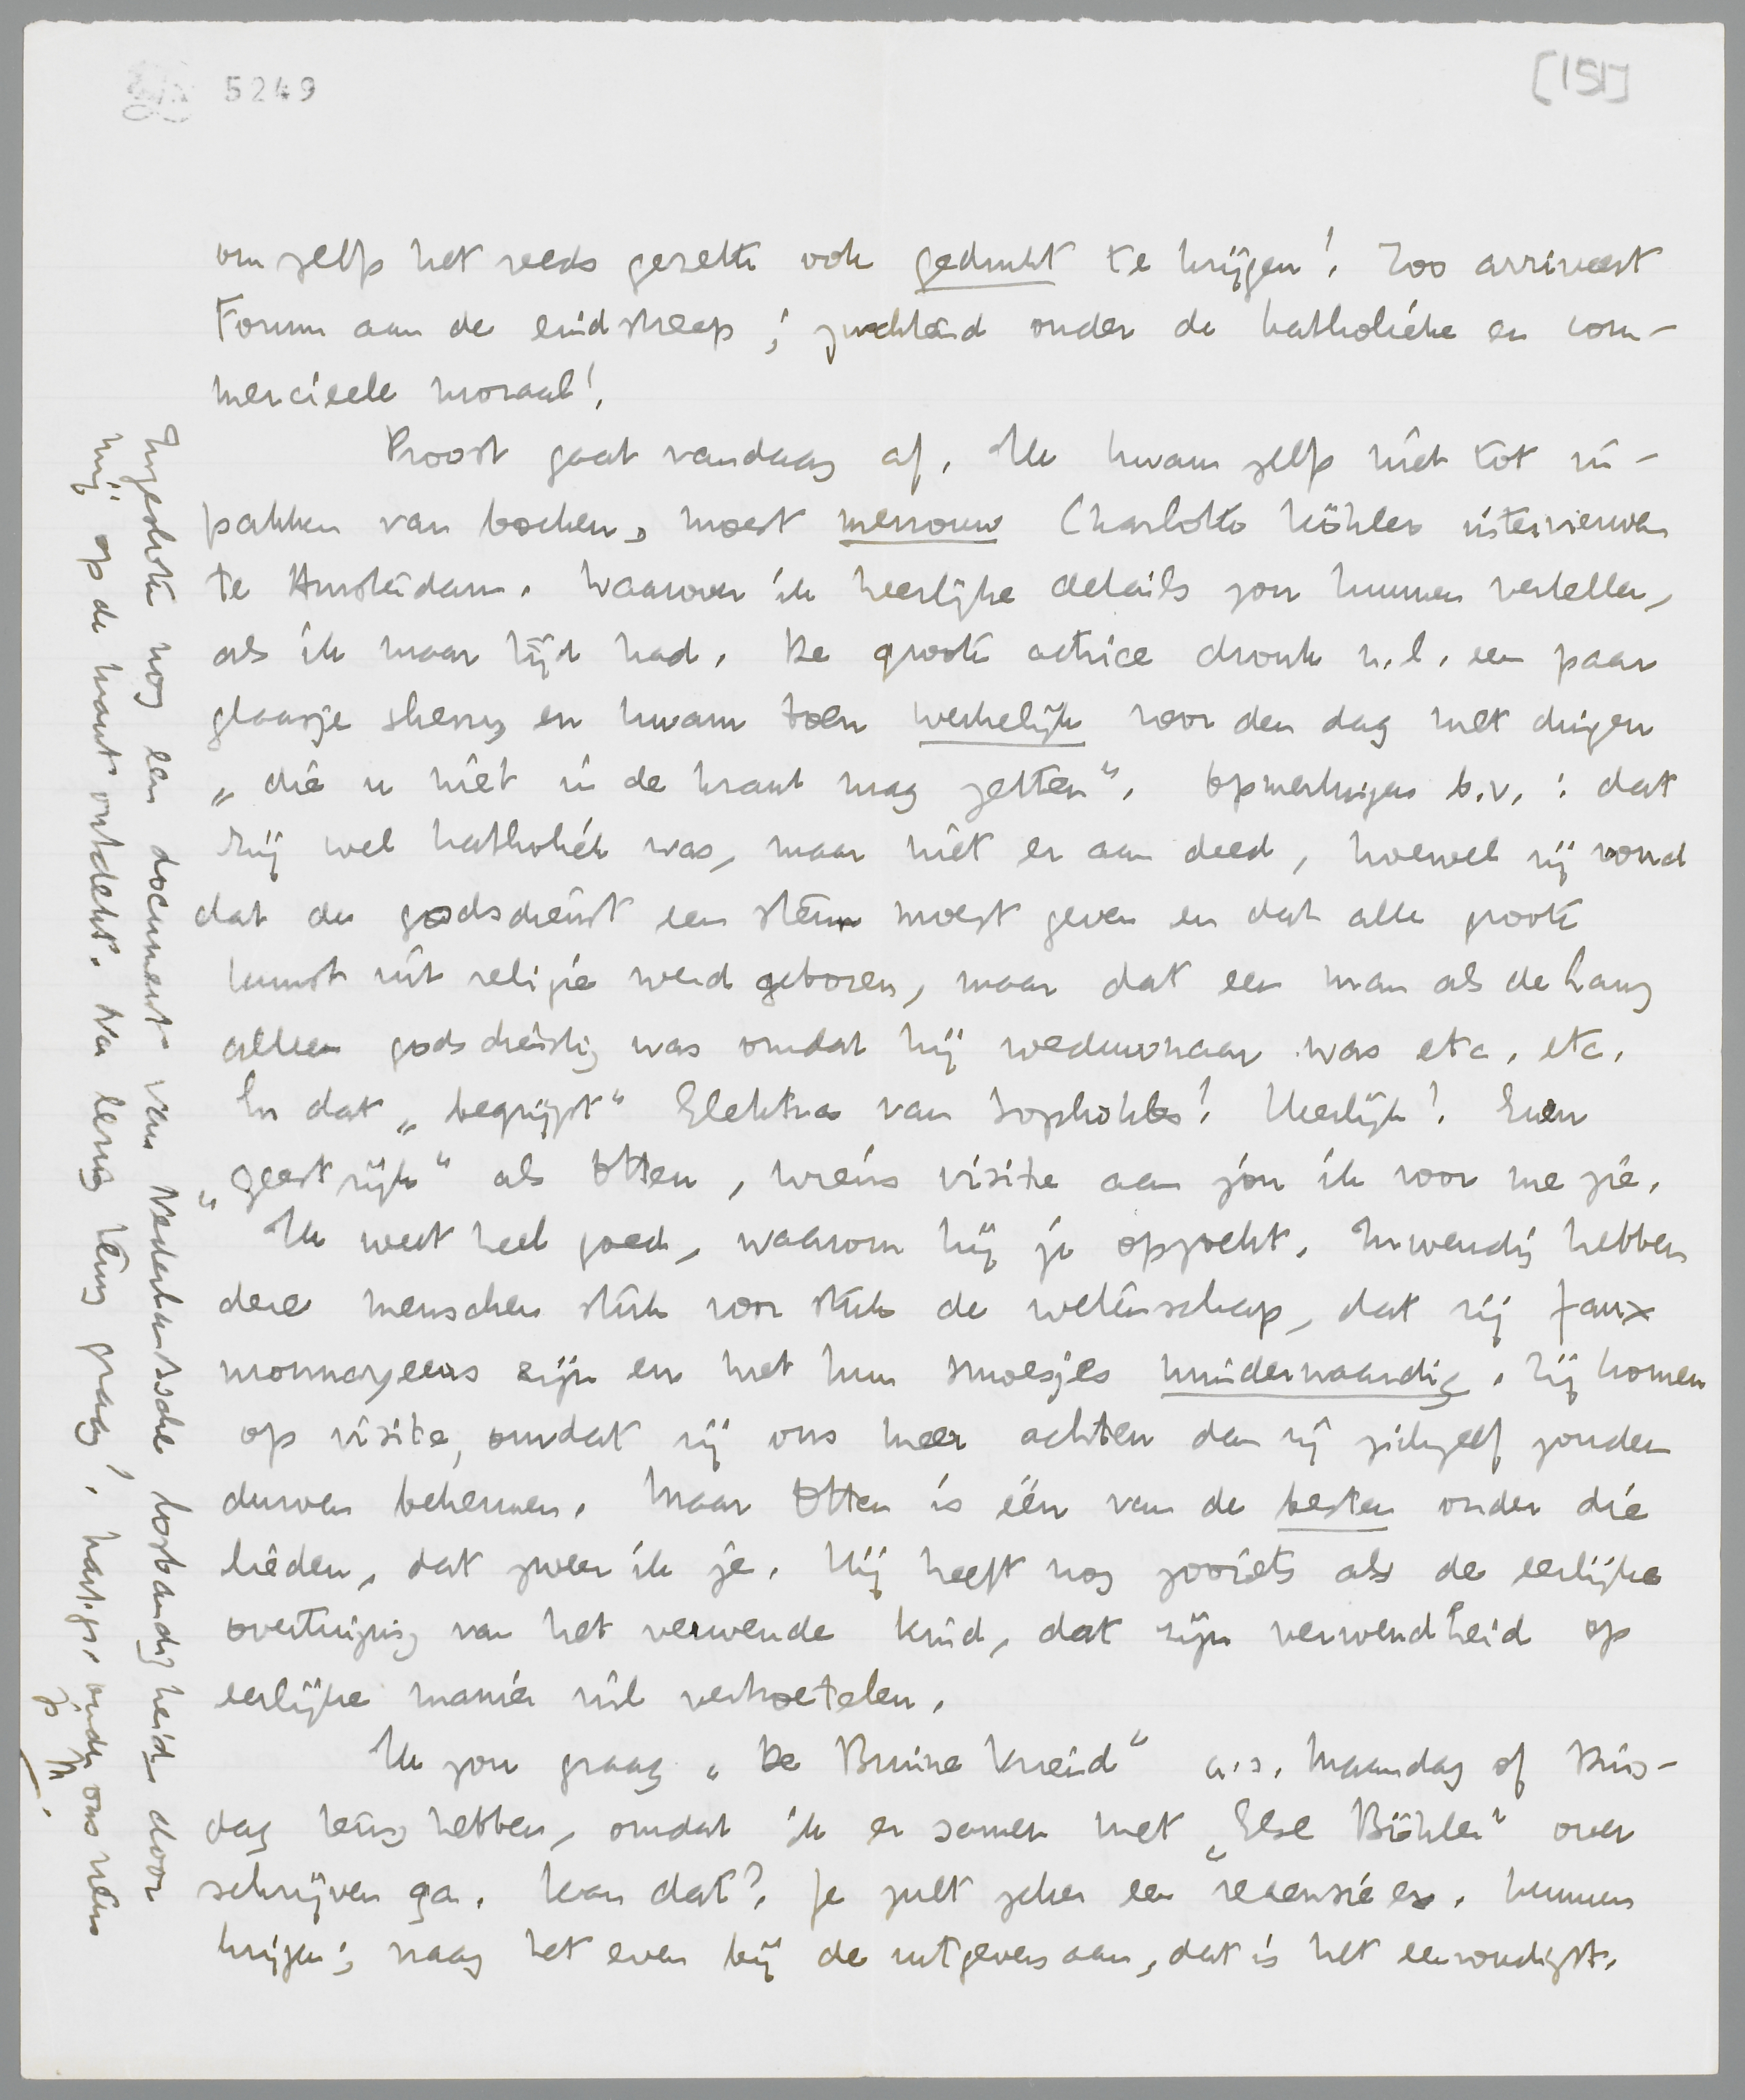 5249
[151]
om zelfs het reeds gezette ook gedrukt te krijgen! Zoo arriveert
Forum aan de eindstreep; zuchtend onder de katholieke en com-
mercieele moraal!
Proost gaat vandaag af. Ik kwam zelfs niet tot in-
pakken van boeken, moest mevrouw Charlotte Köhler interviewen
te Amsterdam. Waarover ik heerlijke details zou kunnen vertellen,
als ik maar tijd had. De groote actrice dronk n.l. een paar
glaasje sherry en kwam toen werkelijk voor den dag met dingen
„die u niet in de krant mag zetten". Opmerkingen b.v.: dat
zij wel katholiek was, maar niet er aan deed, hoewel zij vond
dat de godsdienst een steun moest geven en dat alle groote
kunst uit religie werd geboren, maar dat een man als de Lang
alleen godsdienstig was omdat hij weduwnaar was etc. etc.
En dat „begrijpt" Elektra van Sophokles! Heerlijk! Even
„geestrijk" als Otten, wiens visite aan jou ik voor me zie.
Ik weet heel goed, waarom hij je opzoekt. Inwendig hebben
deze menschen stuk voor stuk de wetenschap, dat zij faux
monnayeurs zijn en met hun smoesjes minderwaardig. Zij komen
op visite, omdat zij ons meer achten dan zij zichzelf zouden
durven bekennen. Maar Otten is één van de besten onder die
lieden, dat zweer ik je. Hij heeft nog zooiets als de eerlijke
overtuiging van het verwende kind, dat zijn verwendheid op
eerlijke manier wil vertroetelen.
Ik zou graag „De Bruine Vriend" a.s. Maandag of Dins-
dag terug hebben, omdat ik er samen met „Else Böhler" over
schrijven ga. Kan dat? Je zult zeker een recensie ex. kunnen
krijgen; vraag het even bij de uitgevers aan, dat is het eenvoudigst.
Ingesloten nog een document van Nederlandsche losbandigheid, door
mij op de krant ontdekt. Na lezing terug graag! hart. gr. onder ons neus
je M.